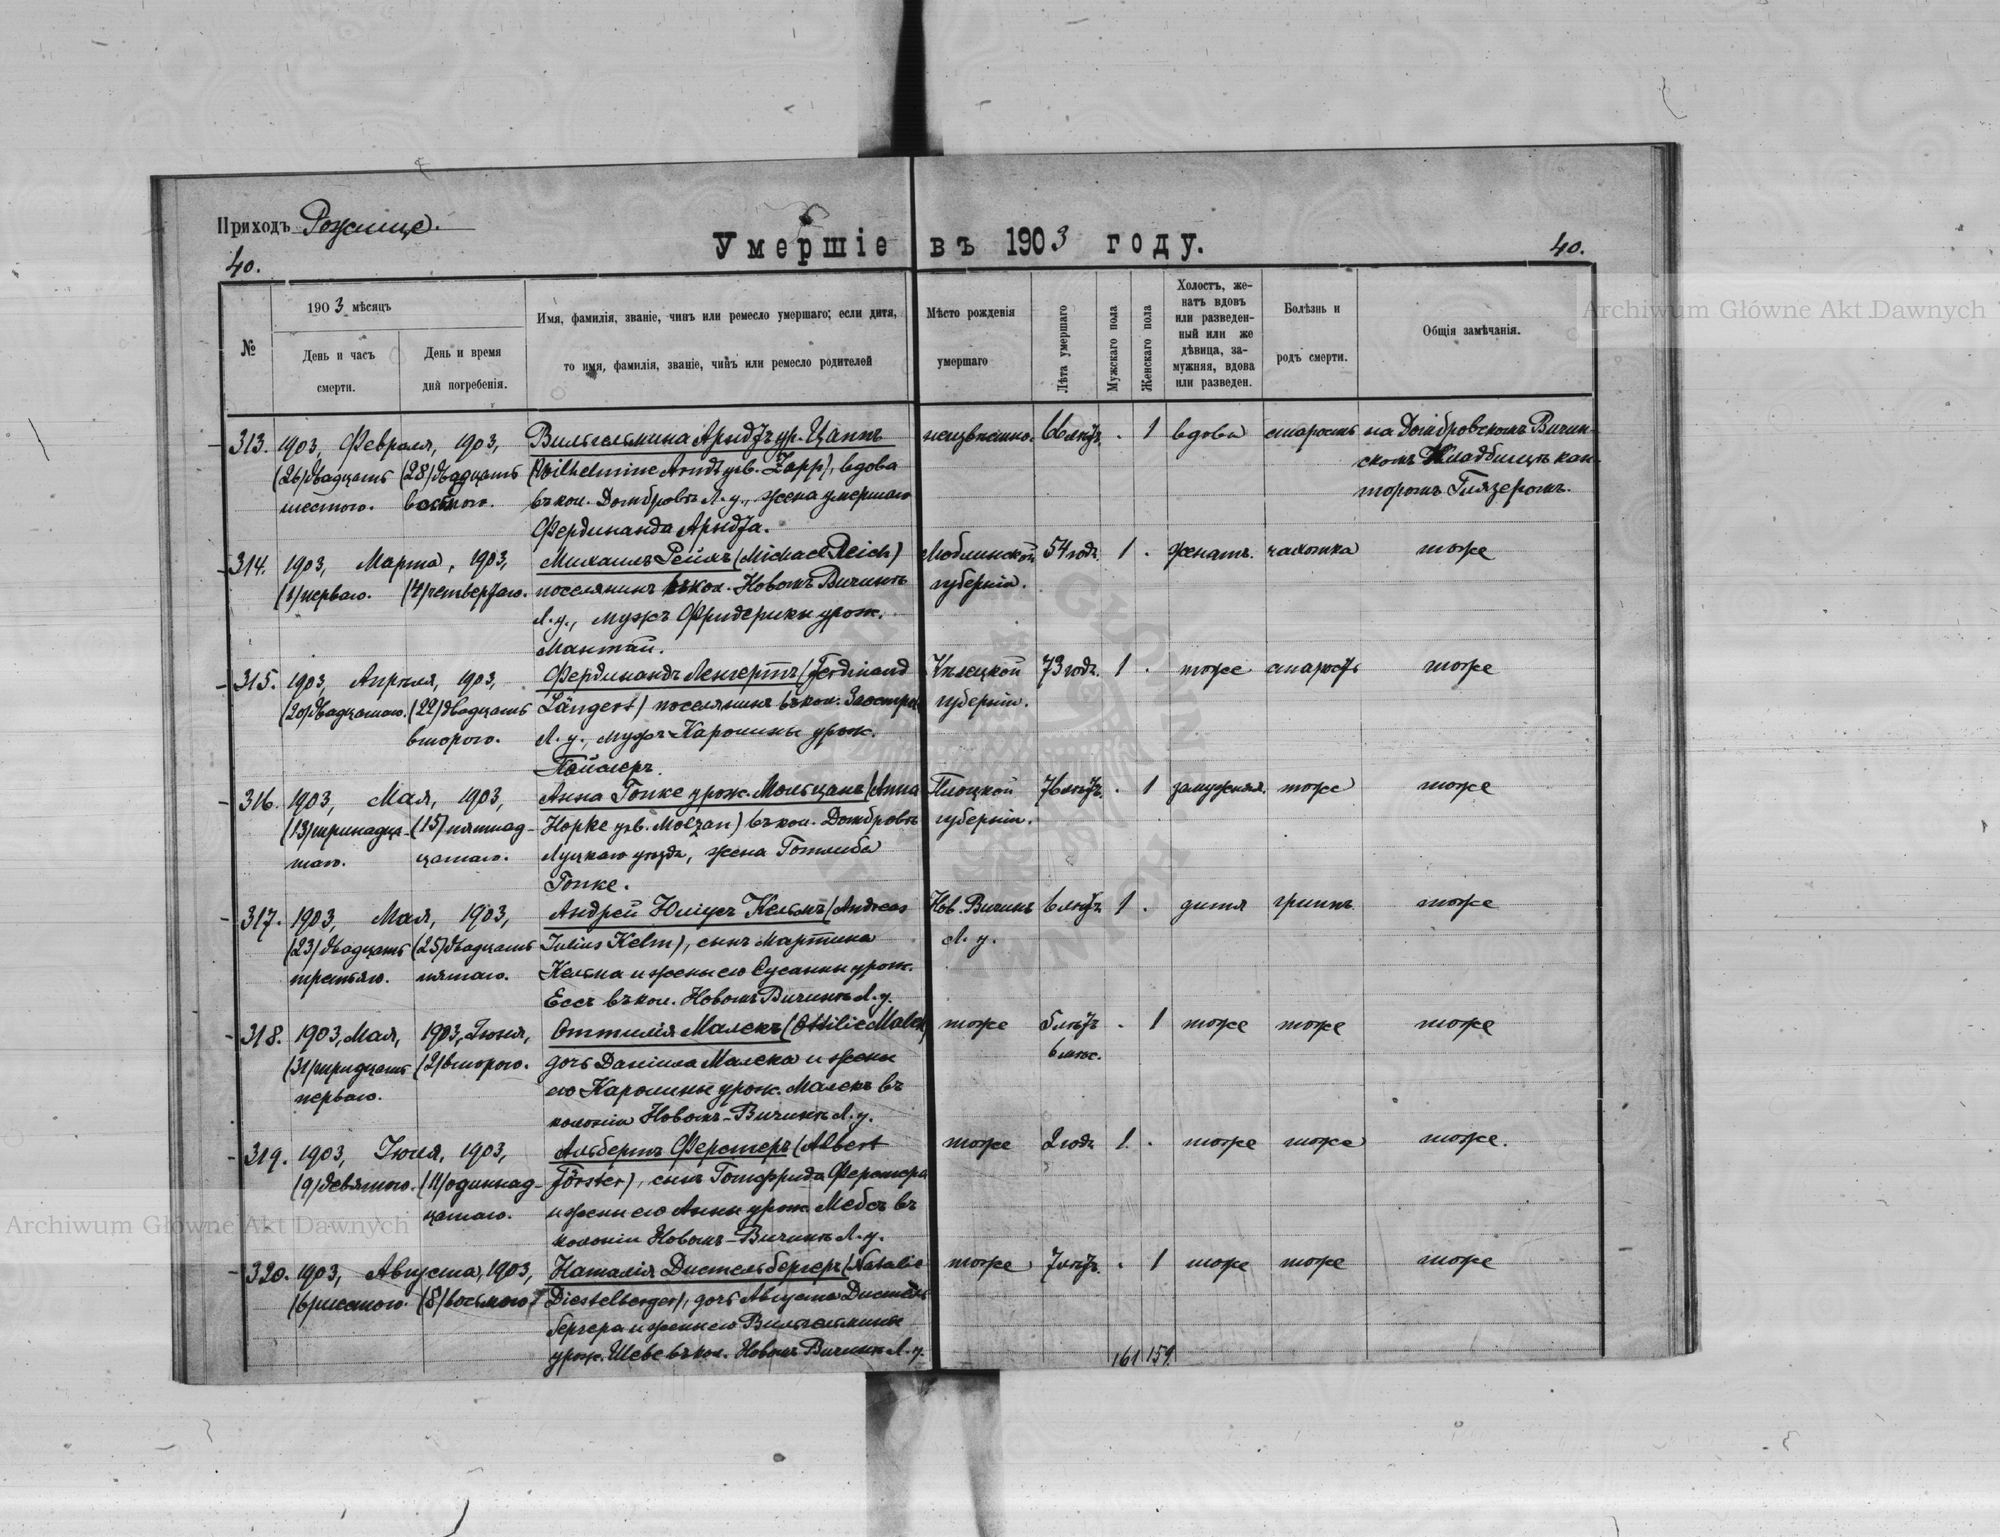 Приходъ Рожище.
Умершіе въ 1903 году.
40.
40.
№
1903 мѣсяцъ
День и часъ
смерти.
День и время
дня погребенія.
Имя, фамилія, званіе, чинъ или ремесло умершаго; если дитя,
то имя, фамилія, званіе, чинъ или ремесло родителей
Мѣсто рожденія
умершаго
Лѣта умершаго
Мужскаго пола
Женскаго пола
Холостъ, же-
натъ вдовъ
или разведен-
ный или же
дѣвица, за-
мужняя, вдова
или разведен.
Болѣзнь и
родъ смерти.
Общія замѣчанія.
313.
1903, Февраля,
(26) двадцать
шестого.
1903,
(28) двадцать
восьмого.
Вильгельмина Арндтъ ур. Цаппъ
(Wilhelmine Arndt geb. Zapp), вдова
въ кол. Домбровѣ Л. у., жена умершаго
Фердинанда Арндта.
неизвѣстно.
66 лѣтъ.
.
1
вдова
старость
на Домбровскомъ Вичин-
скомъ Кладбищѣ кан-
торомъ Глязеромъ.
314.
1903, Марта,
(1) перваго.
1903,
(4) четвертаго.
Михаилъ Рейхъ (Michael Reich)
поселянинъ въ кол. Новомъ Вичинѣ
Л. у., мужъ Фридерики урож.
Мантай.
Люблинской
губерніи.
54 года.
1
.
женатъ.
чахотка
тоже
315.
1903, Апрѣля,
(20) двадцатаго.
1903,
(22) двадцать
второго.
Фердинандъ Ленгертъ (Ferdinand
Längert) поселянинъ въ кол.
Л. у., мужъ Каролины урож.
Кѣлецкой
губерніи.
73 года.
1
.
тоже
старость
тоже
316.
1903, Мая,
(13) тринадца-
таго.
1903,
(15) пятнад-
цатаго.
Анна Гопке урож. Мольцанъ (Anna
Hopke geb. Molzan) въ кол. Домбровѣ
Луцкаго уѣзда, жена Готлиба
Гопке.
Плоцкой
губерніи.
76 лѣтъ.
.
1
замужняя.
тоже
тоже
317.
1903, Мая,
(23) двадцать
третьяго.
1903,
(25) двадцать
пятаго.
Андрей Юліусъ Кельмъ (Andreas
Julius Kelm), сынъ Мартина
Кельма и жены его Сусанны урож.
Ессъ въ кол. Новомъ Вичинѣ Л. у.
Нов. Вичинъ
Л. у.
6 лѣтъ
1
.
дитя
гриппъ.
тоже
318.
1903, Мая,
(31) тридцать
перваго.
1903, Іюня,
(2) второго.
Оттилія Малекъ (Ottilie Malek)
дочь Даніила Малека и жены
его Каролины урож. Малекъ въ
колоніи Новомъ-Вичинѣ Л. у.
тоже
5 лѣтъ
6 мѣс.
.
1
тоже
тоже
тоже
319.
1903, Іюля,
(9) девятого.
1903,
(11) одиннад-
цатаго.
Альбертъ Ферстеръ (Albert
Förster), сынъ Готфрида Ферстера
и жены его Анны урож. Мебсъ въ
колоніи Новомъ-Вичинѣ Л. у.
тоже
2 года
1
.
тоже
тоже
тоже.
320.
1903, Августа,
(6) шестого.
1903,
(8) восьмого.
Наталія Дистельбергеръ (Natalie
Diestelberger), дочь Августа Дистель
бергера и жены его Вильгельмины
урож. Шеве въ кол. Новомъ Вичинѣ Л. у.
тоже
7 лѣтъ.
.
1
тоже
тоже
тоже
161
159
Archiwum Główne Akt Dawnych
Archiwum Główne Akt Dawnych